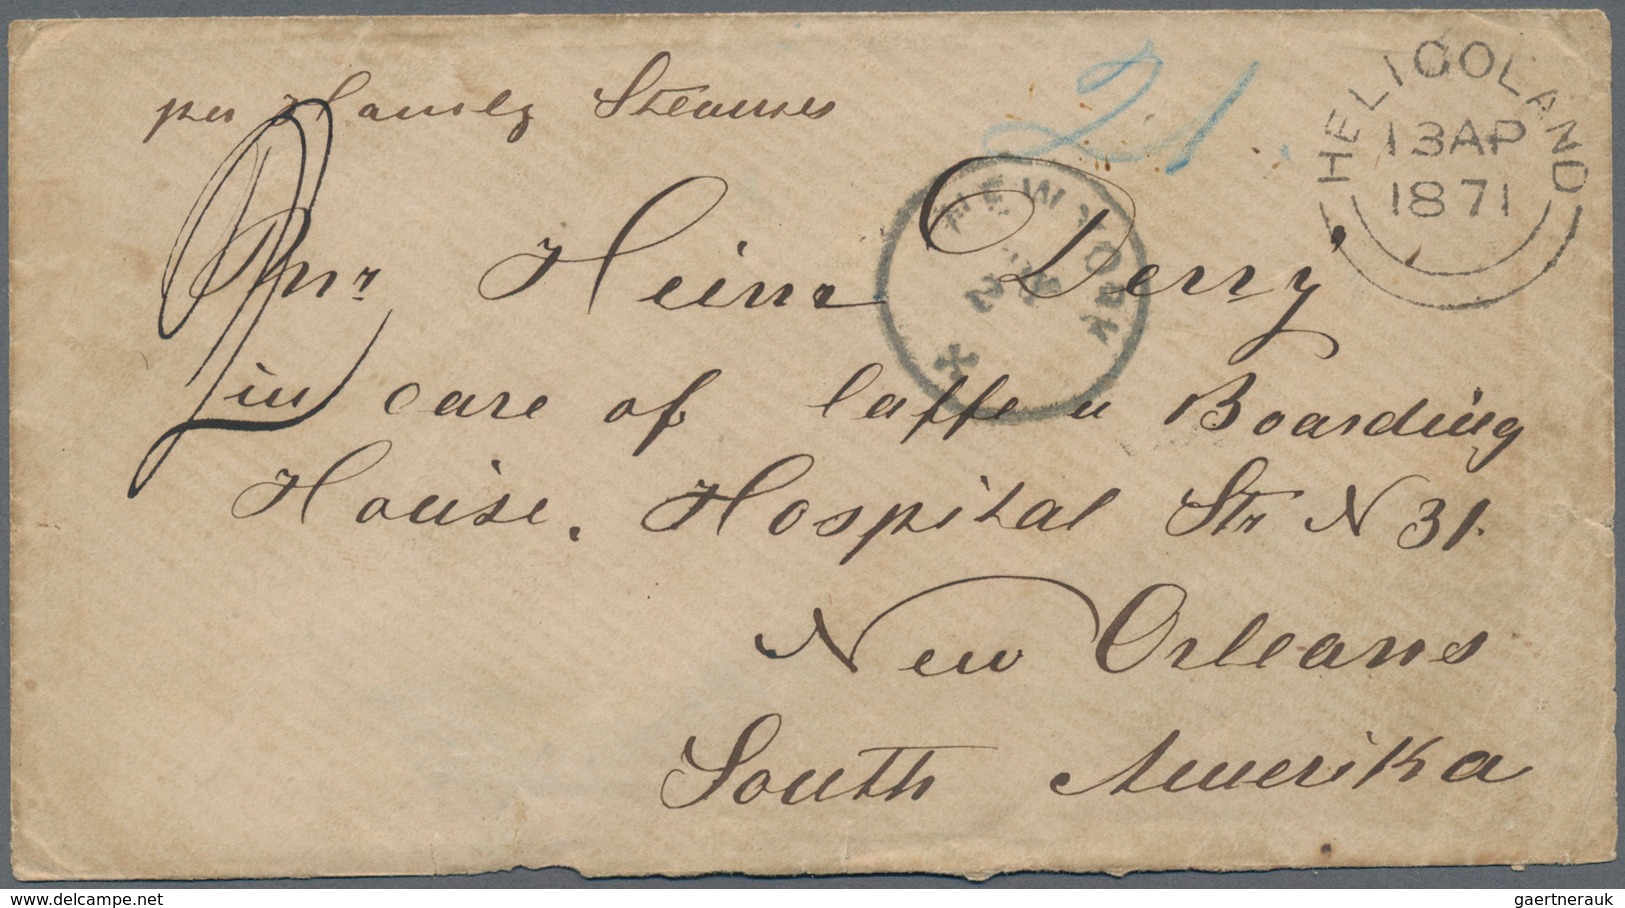 per Steames
21
HELIGOLAND
13 AP
1871
NEW YORK
Mr Heinr Derry
in care of Boarding
House. Hospital Str N 31.
New Orleans
South Amerika
delcampe.net
gaertnerauk